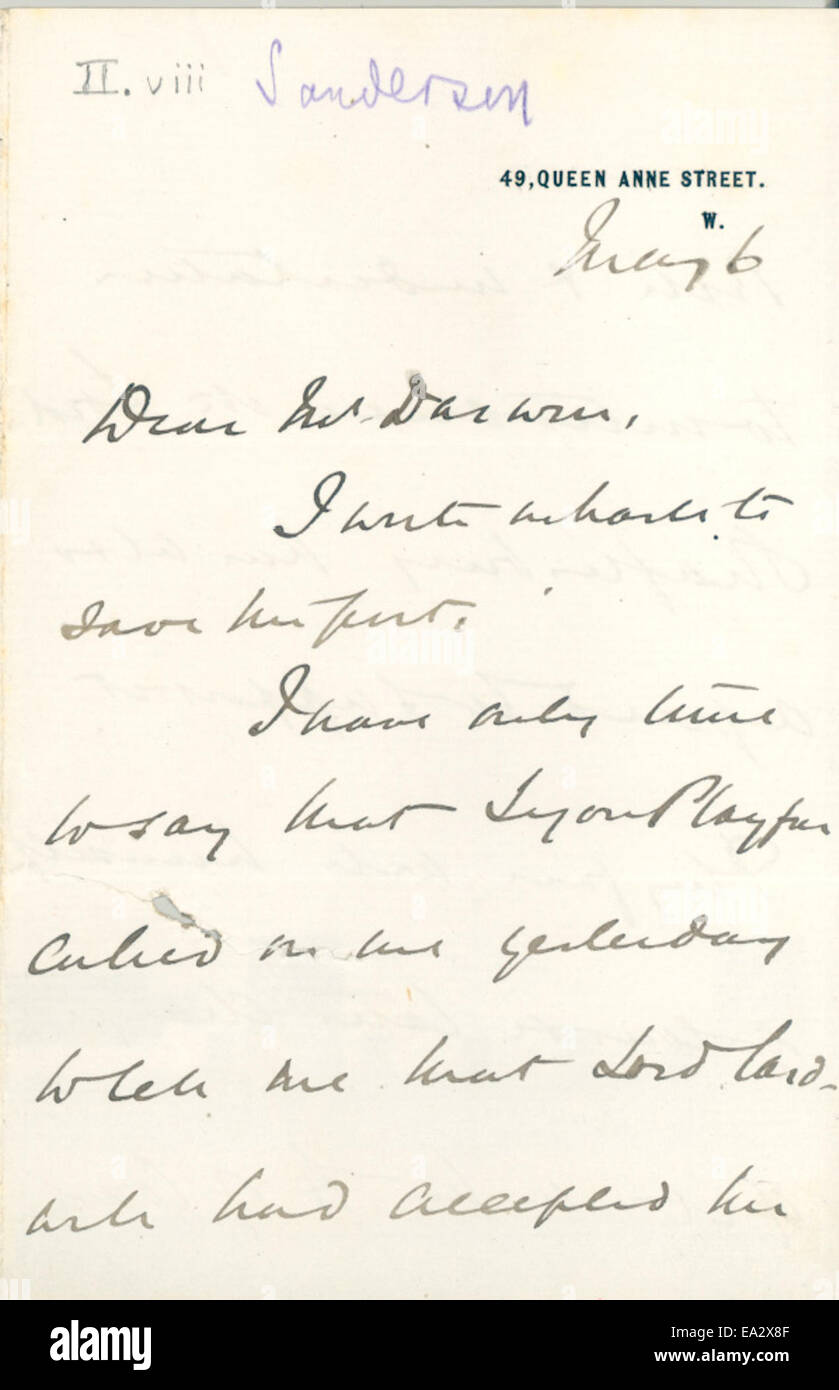 II. viii Sanderson
49, QUEEN ANNE STREET.
W.
May 6
Dear Mr Darwin,
I write in haste to
save the post.
I have only time
to say that Lyon Playfair
called on me yesterday
to tell me that Lord Card-
had accepted the
alamy
Image ID: EA2X8F
www.alamy.com